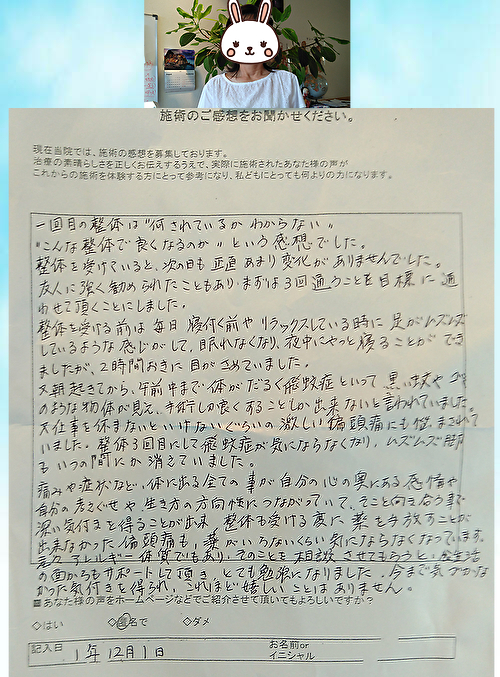 施術のご感想をお聞かせください。
現在当院では、施術の感想を募集しております。
治療の素晴らしさを正しくお伝えするうえで、実際に施術されたあなた様の声が
これからの施術を体験する方にとって参考になり、私どもにとっても何よりの力になります。
一回目の整体は"何されているかわからない"
"こんな整体で良くなるのか"という感想でした。
整体を受けていると、次の日も正直あまり変化がありませんでした。
友人に強く勧められたこともあり、まずは3回通うことを目標に通
わせて頂くことにしました。
整体を受ける前は毎日寝付く前やリラックスしている時に足がムズムズ
しているような感じがして、眠れなくなり、夜中にやっと寝ることができ
ましたが、2時間おきに目がさめていました。
又朝起きてから、午前中まで体がだるく飛蚊症といって黒い蚊やゴミ
のような物体が見え、手術しか良くすることしか出来ないと言われていました。
又仕事を休まないといけないぐらいの激しい偏頭痛にも悩まされて
いました。整体3回目にして飛蚊症が気にならなくなり、ムズムズ脚
もいつの間にか消えていました。
痛みや症状など、体に出る全ての事が自分の心の奥にある感情や
自分の考えぐせや生き方の方向性につながっていて、そこと向き合うまで
深い気付きを得ることが出来、整体も受ける度に薬を手放すことが
出来なかった偏頭痛も、薬がいらないくらい気にならなくなっています。
元々アレルギー体質でもあり、そのことを相談させてもらうと、食生活
の面からもサポートして頂き、とても勉強になりました。今まで気づかな
かった気付きを得られ、これほど嬉しいことはありません。
■あなた様の声をホームページなどでご紹介させて頂いてもよろしいですか？
◇はい ◇匿名で ◇ダメ
記入日 1年 12月1日 お名前or
イニシャル